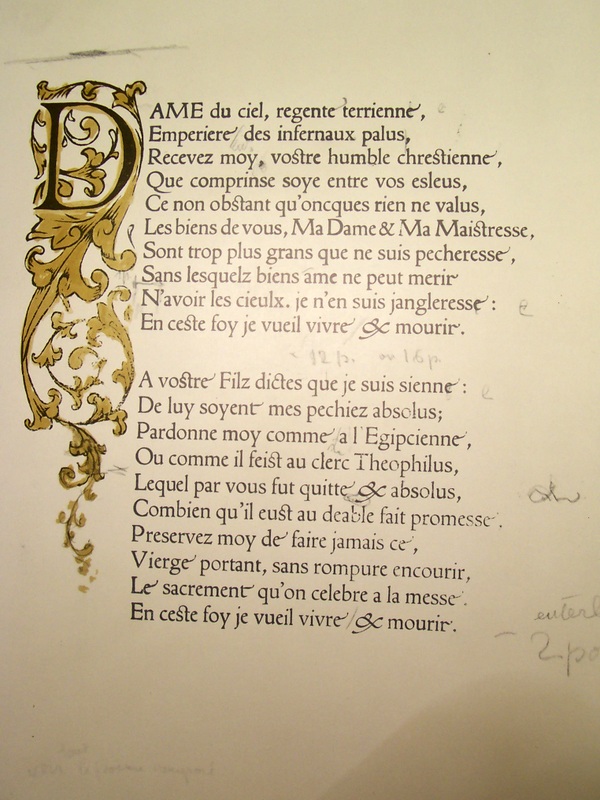 DAME du ciel, regente terrienne,
Emperiere des infernaux palus,
Recevez moy, vostre humble chrestienne,
Que comprinse soye entre vos esleus,
Ce non obstant qu'oncques rien ne valus,
Les biens de vous, Ma Dame & Ma Maistresse,
Sont trop plus grans que ne suis pecheresse,
Sans lesquelz biens ame ne peut merir
N'avoir les cieulx. je n'en suis jangleresse :
En ceste foy je vueil vivre & mourir.
12 p. ou 16 p.
A vostre Filz dictes que je suis sienne :
De luy soyent mes pechiez absolus;
Pardonne moy comme a l'Egipcienne,
Ou comme il feist au clerc Theophilus,
Lequel par vous fut quitte & absolus,
Combien qu'il eust au deable fait promesse.
Preservez moy de faire jamais ce,
Vierge portant, sans rompure encourir,
Le sacrement qu'on celebre a la messe.
En ceste foy je vueil vivre & mourir.
2 po